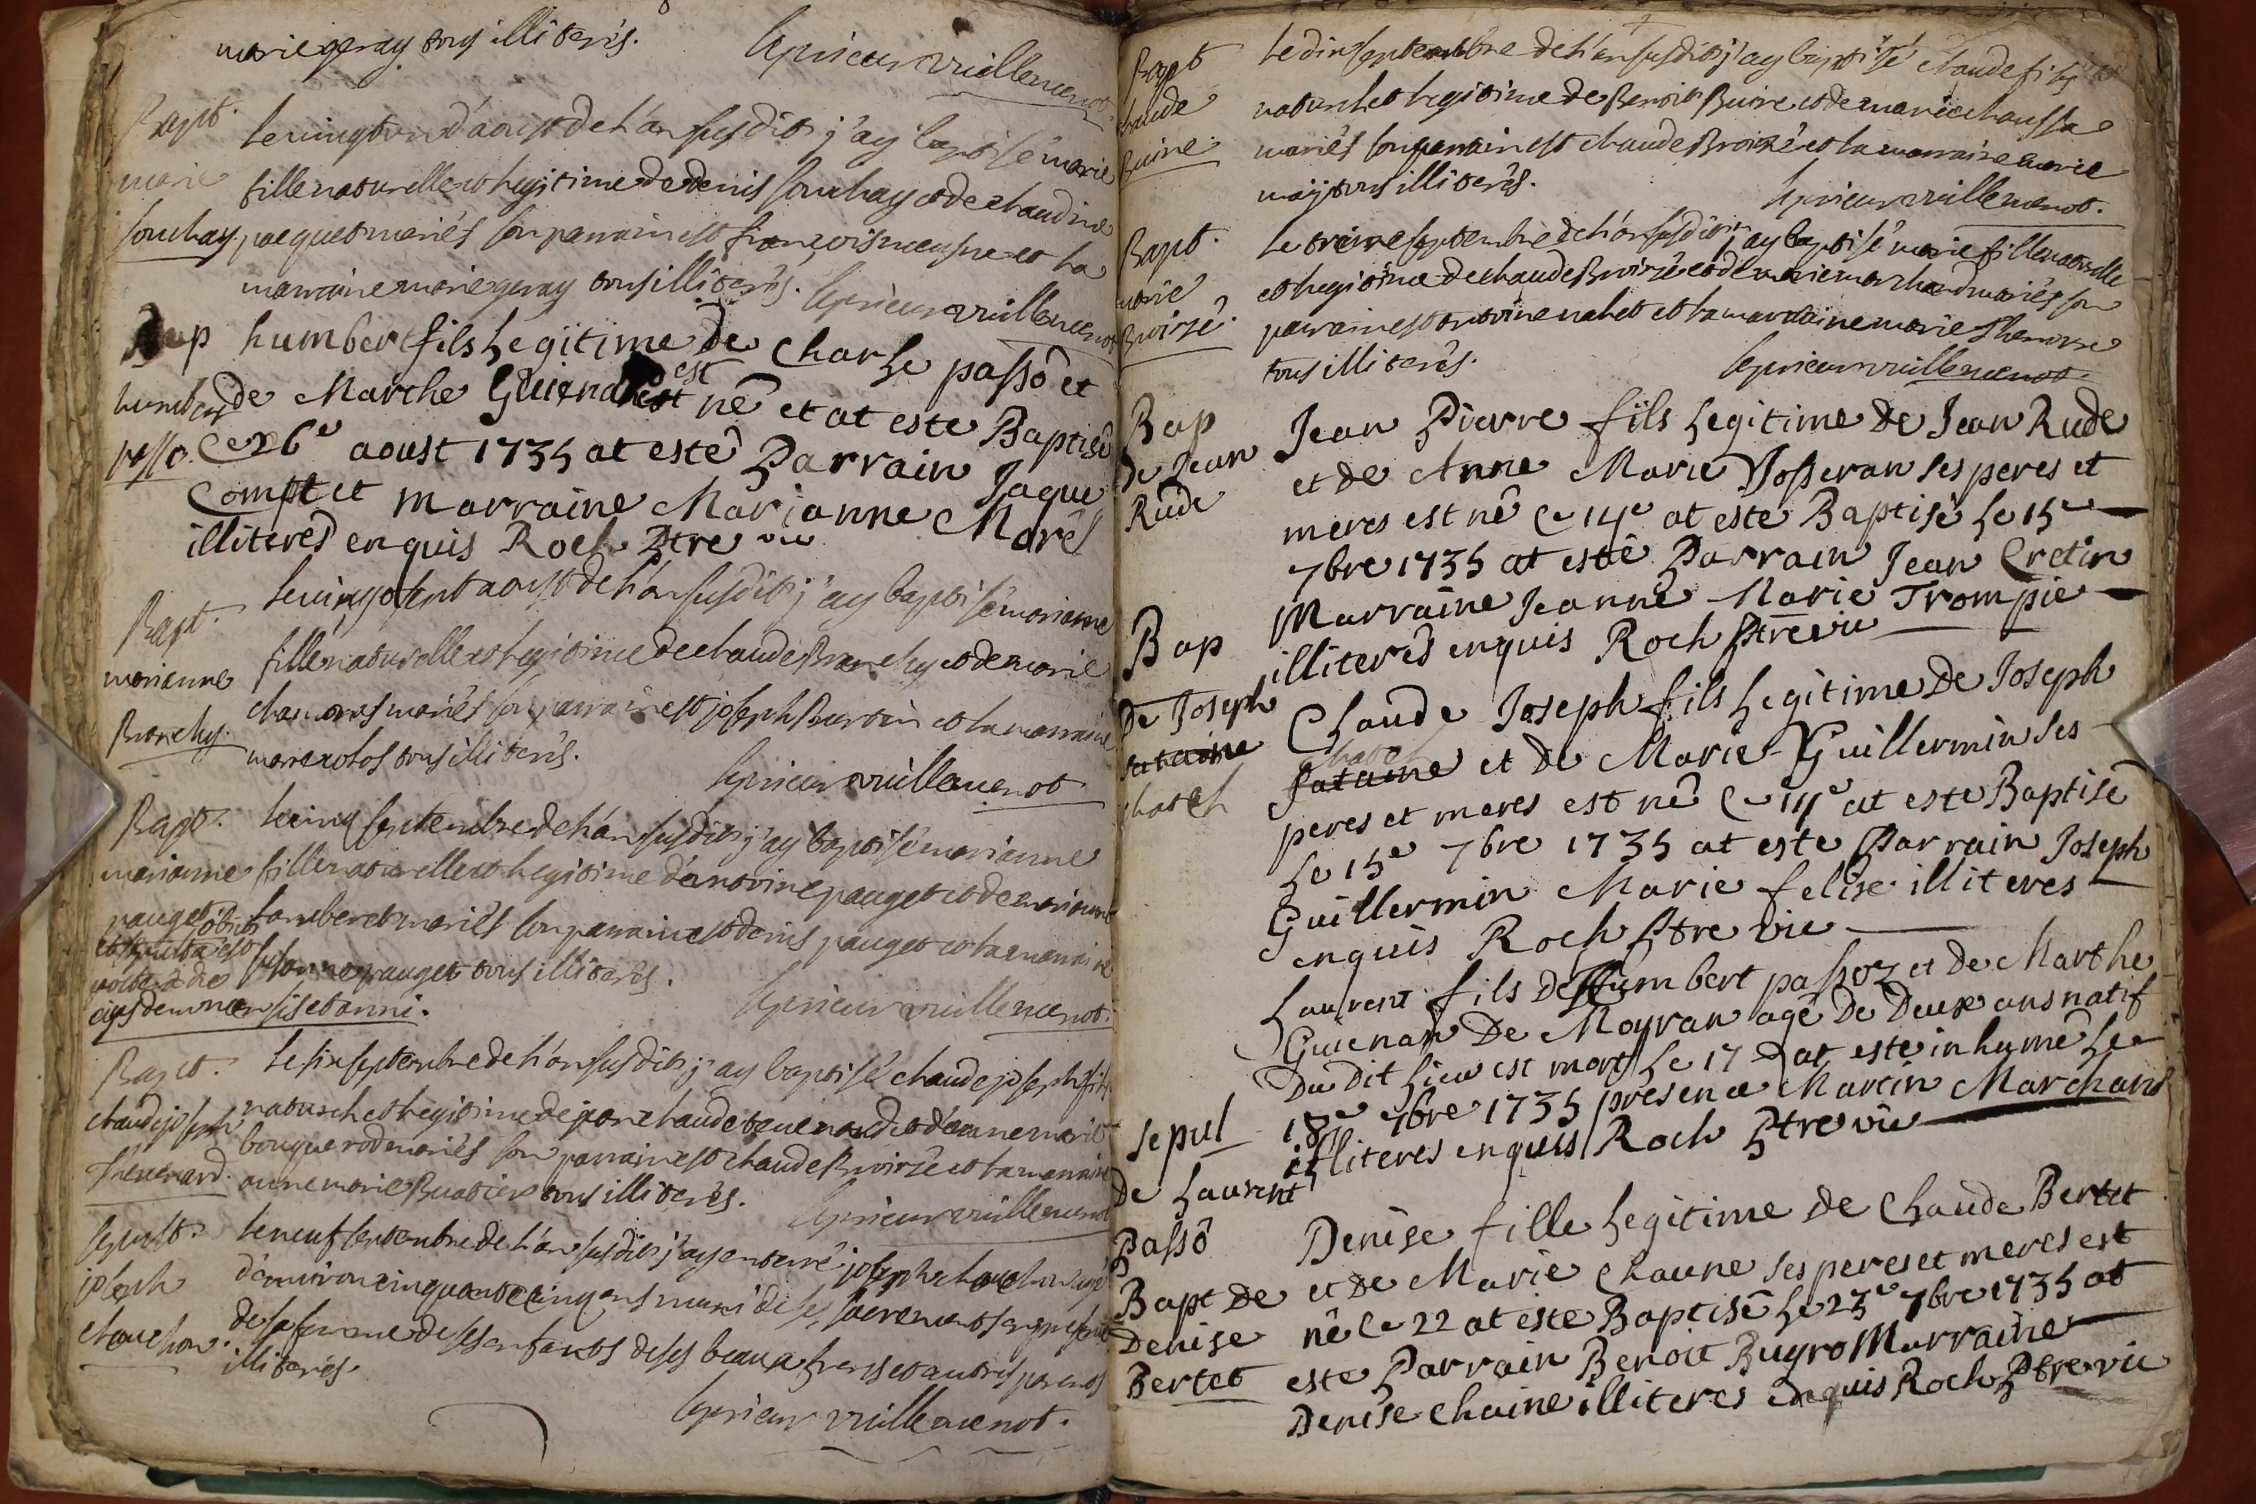 marie geray tous illiterés.
le prieur vuillemenot.
Bapt.
marie
souchay.
le vingt d'aoust de l'an susdit j'ay baptisé marie
fille naturelle et legitime de denis souchay et de claudine
pacquet mariés son parrain est françois et la
marraine marie geray tous illiterés. le prieur vuillemenot
Bap
humbert
passo.
humbert fils legitime de charle passô et
de Marthe Guiena est né et at este Baptisé
Ce 26e aoust 1735 at esté Parrain Jaque
Compt et Marraine Marianne Morel
illiterés enquis Roch Ptre vic
Bapt.
marianne
Branchy.
le vingt sept aoust de l'an susdit j'ay baptisé marianne
fille naturelle et legitime de claude Branchy et de marie
mariés son parrain est joseph Burtin et la marraine
tous illiterés.
le prieur vuillemenot
Bapt.
marianne
pauget
ejusdem mensis et anni.
le cinq septembre de l'an susdit j'ay baptisé marianne
fille naturelle et legitime d'antoine pauget et de marianne
lamberet mariés son parrain est denis pauget et la marraine
susanne pauget tous illiterés.
le prieur vuillemenot.
Bapt.
claude joseph
Thevenard.
le six septembre de l'an susdit j'ay baptisé claude joseph fils
naturel et legitime de jean claude tevenard et d'anne marie
bouquerod mariés son parrain est claude Broizé et la marraine
anne marie Buatier tous illiterés.
le prieur vuillemenot
sepult.
joseph
chauchon.
le neuf septembre de l'an susdit j'ay enterré joseph chauchon agé
d'environ cinquante cinq ans muni de ses sacrements en presence
de sa femme de ses enfants de ses beaux freres et autres parents
illiterés.
le prieur vuillemenot.
Bapt
claude
Buire.
le dix septembre de l'an susdit j'ay baptisé claude fils
naturel et legitime de Benoit Buire et de marie chaussa
mariés son parrain est claude Broizé et la marraine marie
may tous illiterés.
le prieur vuillemenot.
Bapt.
marie
Broizé.
le treize septembre de l'an susdit j'ay baptisé marie fille naturelle
et legitime de claude Broizé et de marie marchand mariés son
parrain est antoine nalet et la marraine marie
tous illiterés.
le prieur vuillemenot.
Bap
De Jean
Rude
Jean Pierre fils legitime de Jean Rude
et de Anne Marie Josseran ses peres et
meres est né Ce 14e at esté Baptisé le 15e
7bre 1735 at esté Parrain Jean Cretin
Marraine Jeanne Marie Trompie
illiterés enquis Roch Ptre vic
Bap
De Joseph
chatel
Claude Joseph fils legitime De Joseph
chatel
et de Marie Guillermin ses
peres et meres est né Ce 14e at este Baptisé
Le 15e 7bre 1735 at este Parrain Joseph
Guillermin Marie felise illiteres
enquis Roch Ptre vic
Sepul
De Laurent
Passô
Laurent fils De Humbert passoz et de Marthe
Guienan De Moyran agé De Deux ans natif
Du Dit Lieu est mort Le 17 at este inhumé Le
18e 7bre 1735 presence Martin Marchand
illiteres enquis Roch Ptre vic
Bapt De
Denise
Bertet
Denise fille legitime de Claude Bertet
et de Marie Chaune ses peres et meres est
né Ce 22 at este Baptisé Le 23e 7bre 1735 at
este Parrain Benoit Bugro Marraine
Denise Chaine illiteres enquis Roch Ptre vic